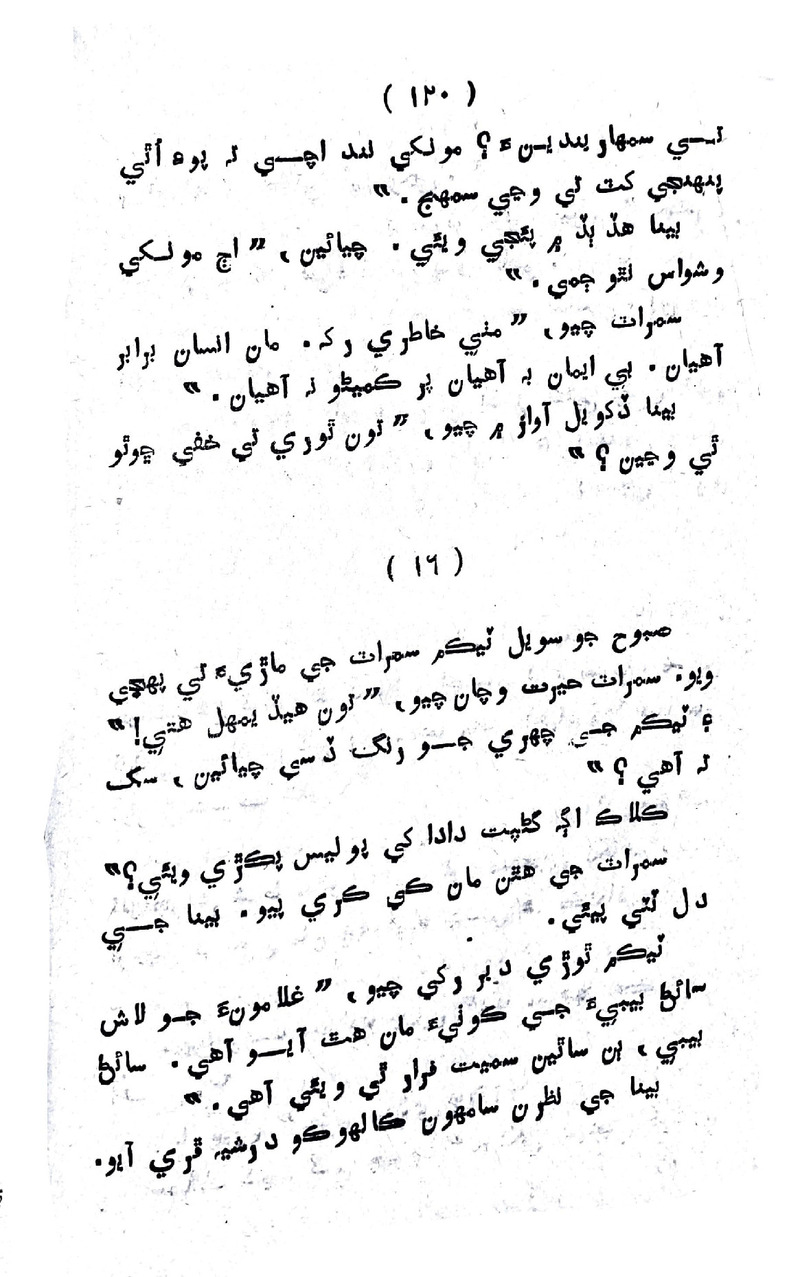 ( ١٢٠ )
تــي سمهاريندينءَ؟ مونکي ننڊ اچــي ته پوءِ اُٿي
پنهنجي کٽ تي وڃي سمهج.”
بينا هڏ ٻڏ ۾ پئجي ويئي. چيائين، ”اڄ مونــکي
وشواس نٿو ڄمي.”
سمرات چيو، ”مٺي خاطري رک. مان انسان برابر
آهيان. بي ايمان به آهيان پر ڪميڻو نه آهيان.”
بينا ڏکويل آواز ۾ چيو، ”تون ٿوري تي خفي ڇوٿو
ٿي وڃين؟”
( ١٦ )
صبوح جو سويل ٽيڪم سمرات جي ماڙيءَ تي پهچي
ويو. سمرات حيرت وچان چيو، ”تون هيڏيمهل هتي!”
۽ ٽيڪم جــي چهري جــو رنگ ڏسي چيائين، سک
نه آهي؟”
ڪلاڪ اڳ گڻپت دادا کي پوليس پڪڙي ويئي؟”
سمرات جي هٿن مان ڪي ڪري پيو. بينا جــي
دل ٽٽي پيئي.
ٽيڪم ٿوڙي دير رکي چيو، ”غلامونءَ جــو لاش
سائڻ بيبيءَ جــي ڪوٺيءَ مان هٿ آيــو آهي. سائڻ
بيبي، ٻن ساٿين سميت فرار ٿي ويئي آهي.”
بينا جي نظرن سامهون ڪالهوڪو درشيہ ڦري آيو.